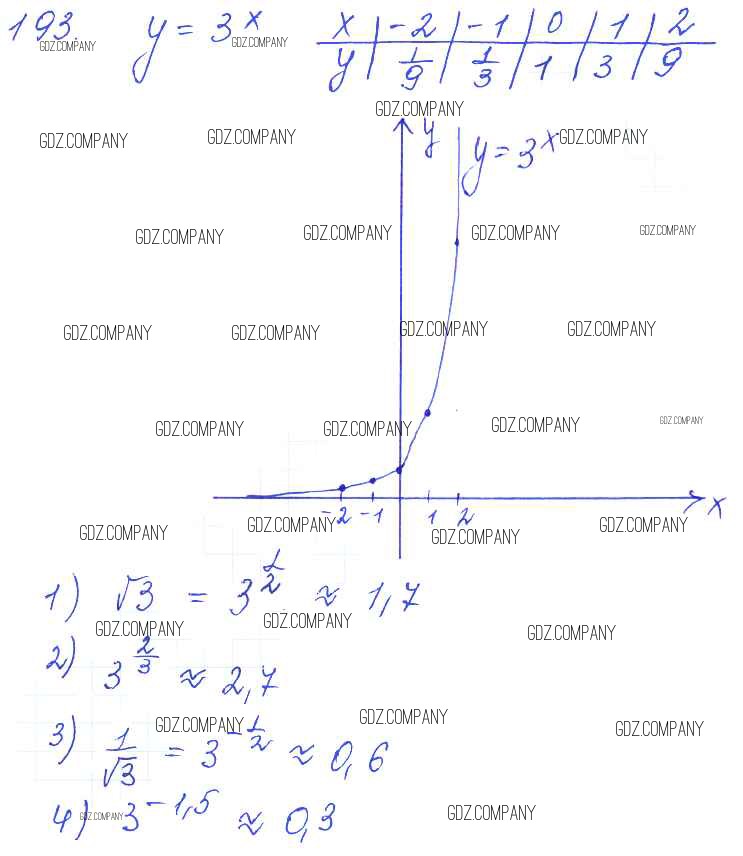 193. y = 3^x x | -2 | -1 | 0 | 1 | 2
GDZ.COMPANY GDZ.COMPANY y | 1/9 | 1/3 | 1 | 3 | 9
GDZ.COMPANY
y
GDZ.COMPANY GDZ.COMPANY y = 3^x GDZ.COMPANY
GDZ.COMPANY GDZ.COMPANY GDZ.COMPANY GDZ.COMPANY
GDZ.COMPANY GDZ.COMPANY GDZ.COMPANY GDZ.COMPANY
GDZ.COMPANY GDZ.COMPANY GDZ.COMPANY GDZ.COMPANY
-2 -1 1 2 x
GDZ.COMPANY GDZ.COMPANY GDZ.COMPANY GDZ.COMPANY
1) √3 = 3^(1/2) ≈ 1,7
GDZ.COMPANY GDZ.COMPANY GDZ.COMPANY
2) 3^(2/3) ≈ 2,7
GDZ.COMPANY GDZ.COMPANY GDZ.COMPANY
3) 1/√3 = 3^(-1/2) ≈ 0,6
4) 3^(-1,5) ≈ 0,3
GDZ.COMPANY GDZ.COMPANY